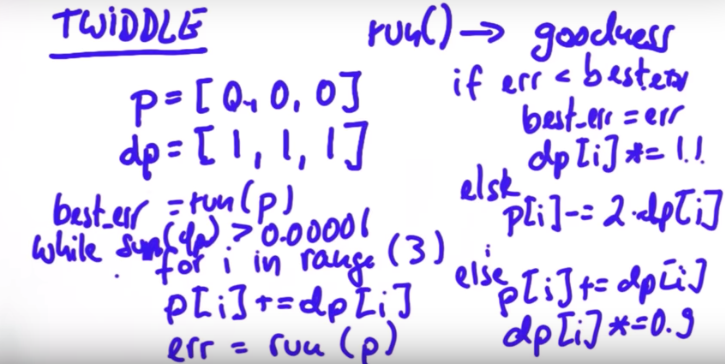 TWIDDLE
p = [0, 0, 0]
dp = [1, 1, 1]
best_err = run(p)
while sum(dp) > 0.00001
for i in range (3)
p[i] += dp[i]
err = run (p)
run() → goodness
if err < best_err
best_err = err
dp[i] *= 1.1
else
p[i] -= 2·dp[i]
else
p[i] += dp[i]
dp[i] *= 0.9